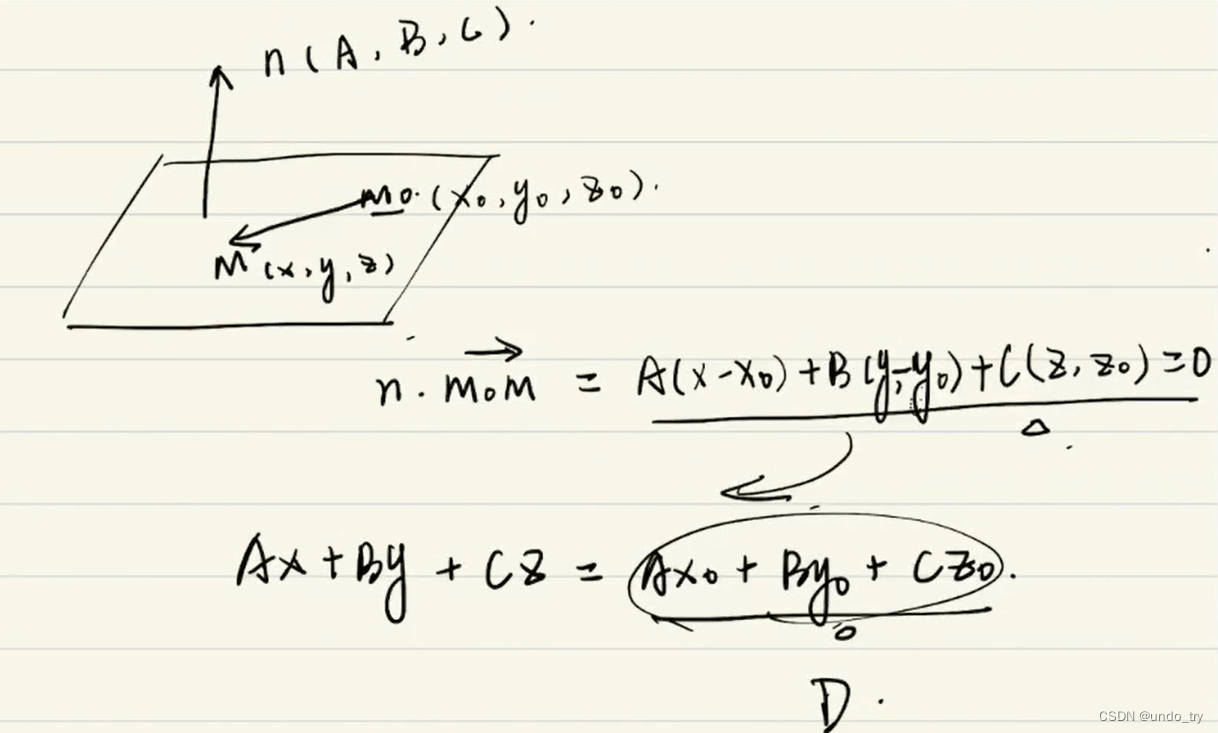 n(A,B,C).
M₀.(x₀,y₀,z₀).
M(x,y,z)
n.M₀M = A(x-x₀)+B(y-y₀)+C(z,z₀)=0
Ax+By+Cz = Ax₀+By₀+Cz₀.
D.
CSDN @undo_try